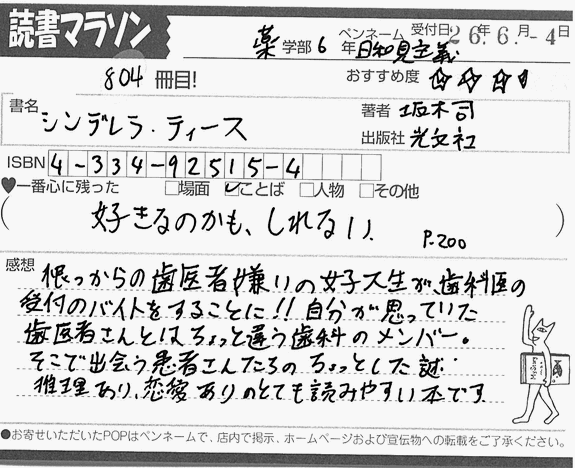 読書マラソン
薬学部6年
ペンネーム 日和見主義
受付日 26年6月-4日
804冊目!
おすすめ度 ☆☆☆
書名
シンデレラ・ティース
著者 坂木司
出版社 光文社
ISBN 4-334-92515-4
♥一番心に残った □場面 ☑ことば □人物 □その他
(好きなのかも、しれない。 P.200)
感想
根っからの歯医者嫌いの女子大生が、歯科医の
受付のバイトをすることに!!自分が思っていた
歯医者さんとはちょっと違う歯科のメンバー。
そこで出会う患者さんたちのちょっとした謎…
推理あり、恋愛ありのとても読みやすい本です
●お寄せいただいたPOPはペンネームで、店内で掲示、ホームページおよび宣伝物への転載をご了承ください。